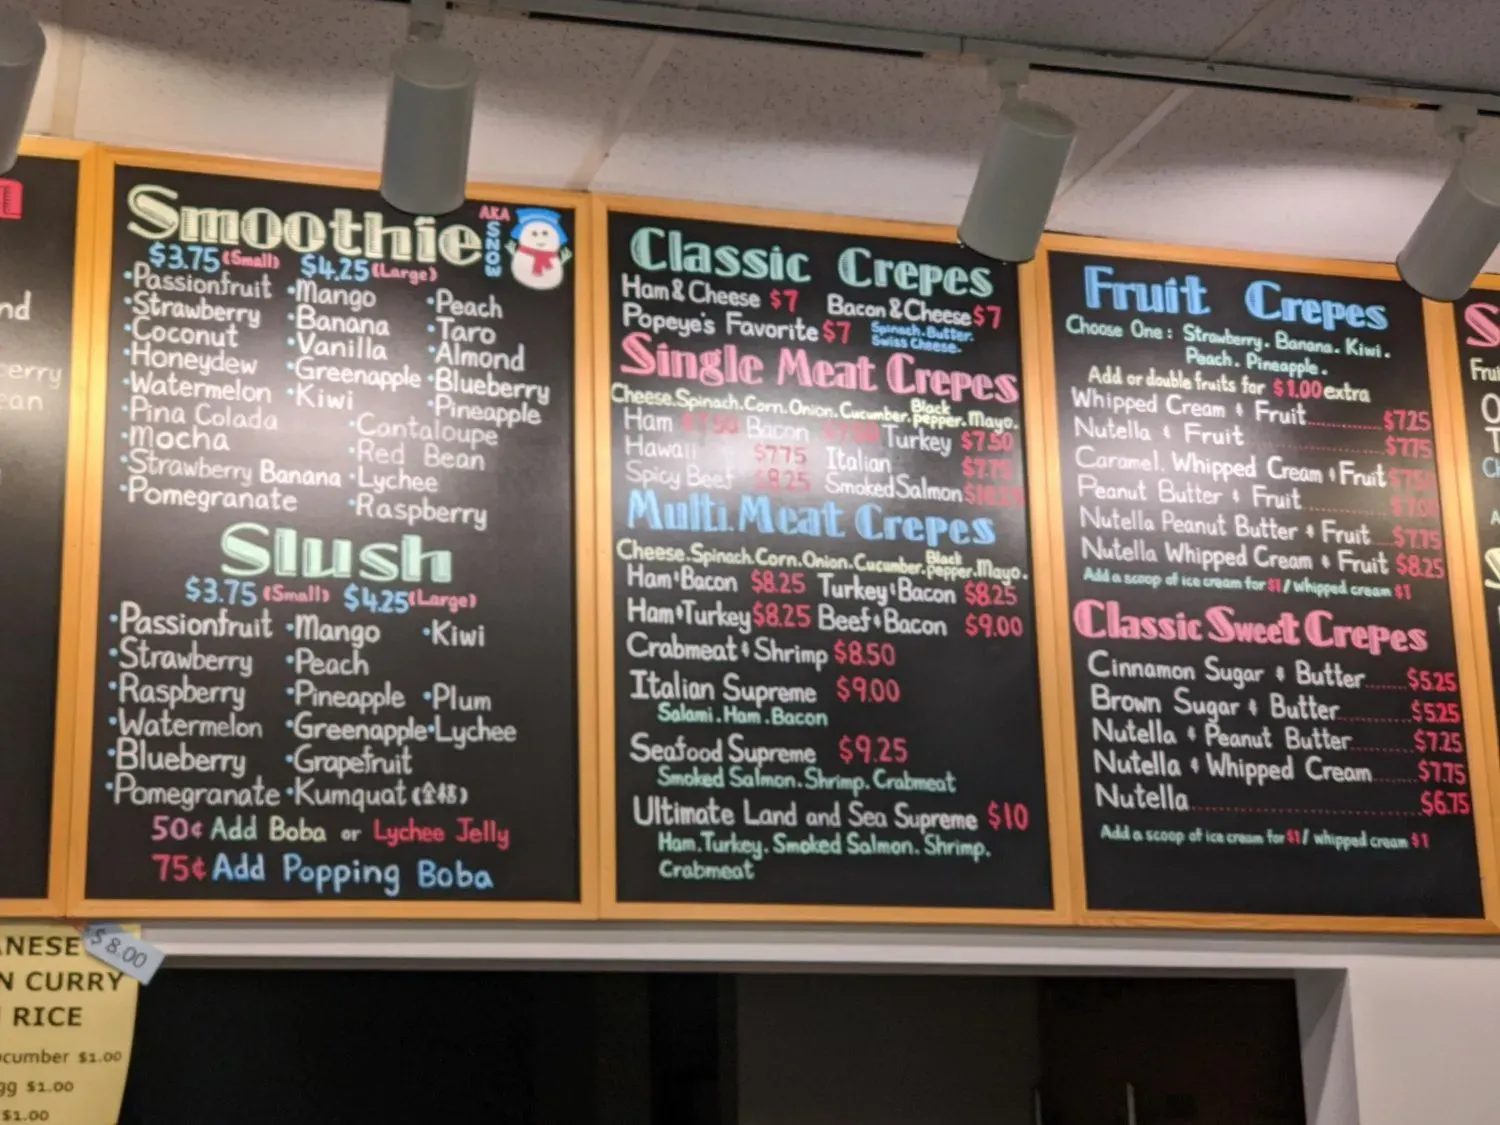 Smoothie
AKA SNOW
$3.75 (Small) $4.25 (Large)
•Passionfruit •Mango •Peach
•Strawberry •Banana •Taro
•Coconut •Vanilla •Almond
•Honeydew •Greenapple •Blueberry
•Watermelon •Kiwi •Pineapple
•Pina Colada •Cantaloupe
•Mocha •Red Bean
•Strawberry Banana •Lychee
•Pomegranate •Raspberry
Slush
$3.75 (Small) $4.25 (Large)
•Passionfruit •Mango •Kiwi
•Strawberry •Peach
•Raspberry •Pineapple •Plum
•Watermelon •Greenapple •Lychee
•Blueberry •Grapefruit
•Pomegranate •Kumquat (金桔)
50¢ Add Boba or Lychee Jelly
75¢ Add Popping Boba
Classic Crepes
Ham & Cheese $7 Bacon & Cheese $7
Popeye's Favorite $7 Spinach. Butter.
Swiss Cheese.
Single Meat Crepes
Cheese. Spinach. Corn. Onion. Cucumber. Black pepper. Mayo.
Ham $7.50 Bacon $7.50 Turkey $7.50
Hawaii $7.75 Italian $7.75
Spicy Beef $8.25 Smoked Salmon
Multi Meat Crepes
Cheese. Spinach. Corn. Onion. Cucumber. Black pepper. Mayo.
Ham & Bacon $8.25 Turkey & Bacon $8.25
Ham & Turkey $8.25 Beef & Bacon $9.00
Crabmeat & Shrimp $8.50
Italian Supreme $9.00
Salami. Ham. Bacon
Seafood Supreme $9.25
Smoked Salmon. Shrimp. Crabmeat
Ultimate Land and Sea Supreme $10
Ham. Turkey. Smoked Salmon. Shrimp.
Crabmeat
Fruit Crepes
Choose One: Strawberry. Banana. Kiwi.
Peach. Pineapple.
Add or double fruits for $1.00 extra
Whipped Cream & Fruit............. $7.25
Nutella & Fruit ................... $7.75
Caramel. Whipped Cream & Fruit $7.50
Peanut Butter & Fruit ............ $7.00
Nutella Peanut Butter & Fruit ... $7.75
Nutella Whipped Cream & Fruit $8.25
Add a scoop of ice cream for $1 / whipped cream $1
Classic Sweet Crepes
Cinnamon Sugar & Butter....... $5.25
Brown Sugar & Butter............ $5.25
Nutella & Peanut Butter......... $7.25
Nutella & Whipped Cream....... $7.75
Nutella................................ $6.75
Add a scoop of ice cream for $1 / whipped cream $1
$8.00
ANESE
N CURRY
RICE
cumber $1.00
gg $1.00
$1.00